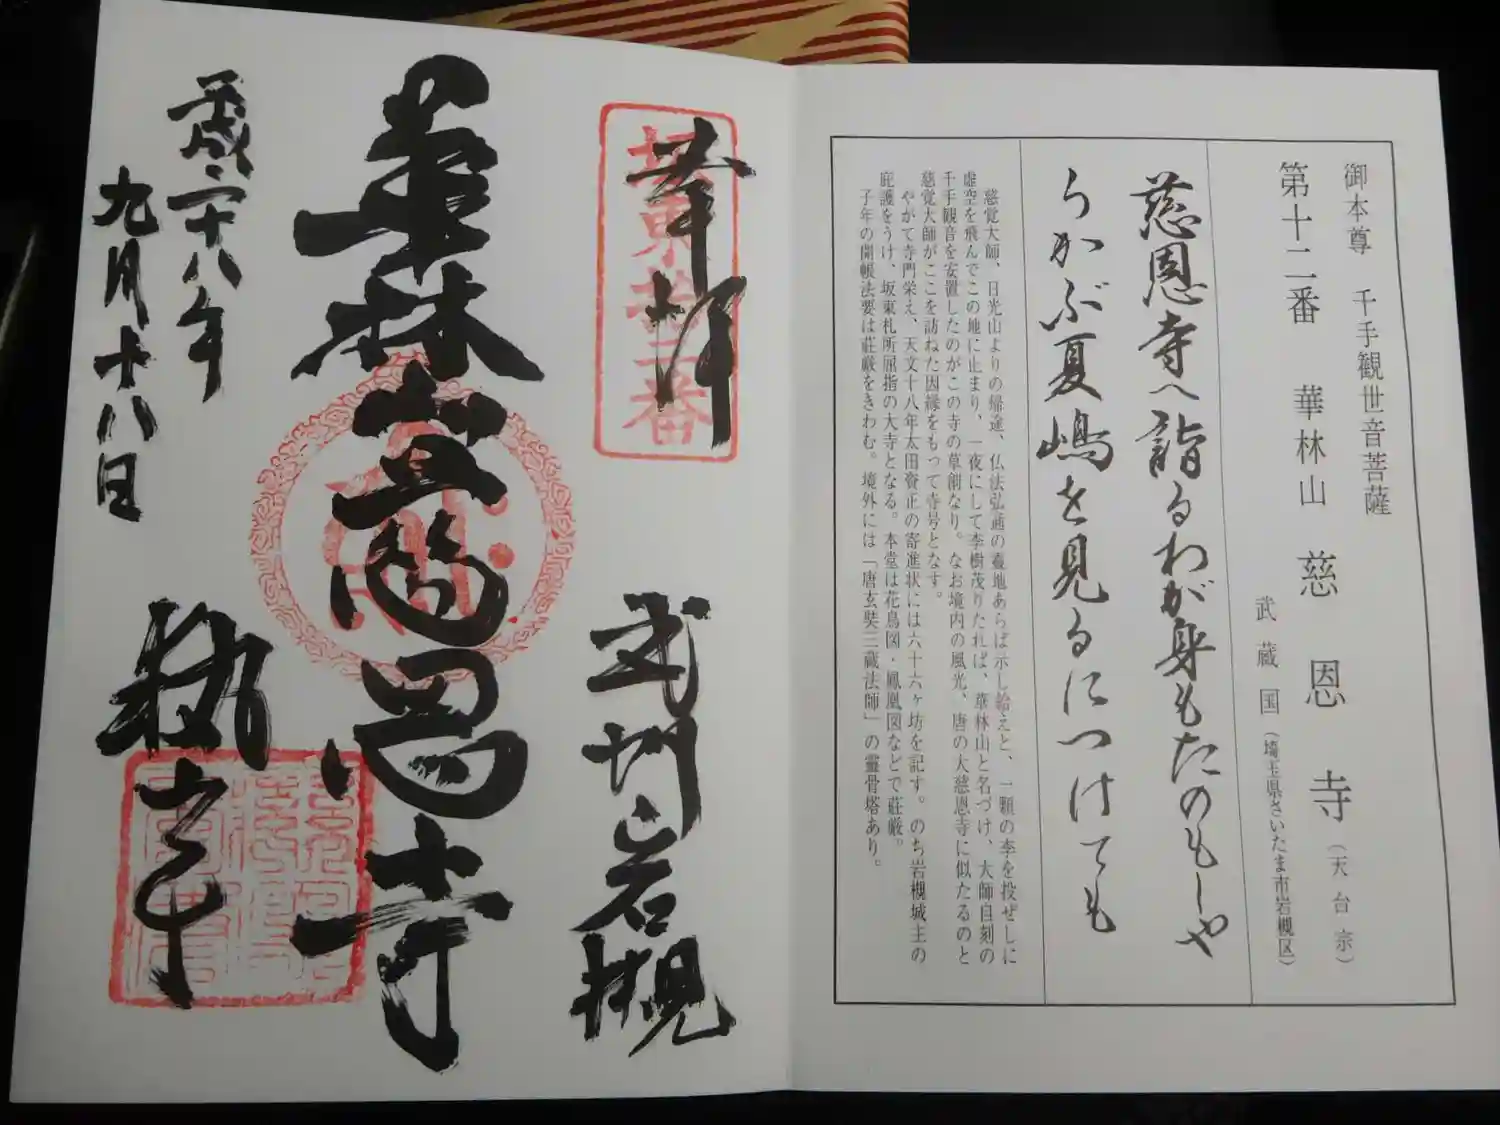 御本尊　千手観世音菩薩
第十二番　華林山　慈恩寺（天台宗）
武蔵国（埼玉県さいたま市岩槻区）
慈恩寺へ詣るわが身もたのもしや
うかぶ夏嶋を見るにつけても
慈覚大師、日光山よりの帰途、仏法弘通の霊地あらば示し給えと、一顆の李を投ぜしに
虚空を飛んでこの地に止まり、一夜にして李樹茂りたれば、華林山と名づけ、大師自刻の
千手観音を安置したのがこの寺の草創なり。なお境内の風光、唐の大慈恩寺に似たるのと
慈覚大師がここを訪ねた因縁をもって寺号となす。
やがて寺門栄え、天文十八年太田資正の寄進状には六十六ヶ坊を記す。のち岩槻城主の
庇護をうけ、坂東札所屈指の大寺となる。本堂は花鳥図・鳳凰図などで荘厳。
子年の開帳法要は荘厳をきわむ。境外には「唐玄奘三蔵法師」の霊骨塔あり。
奉拝
坂東十二番
武州岩槻
華林山慈恩寺
平成二十八年
九月十八日
執事